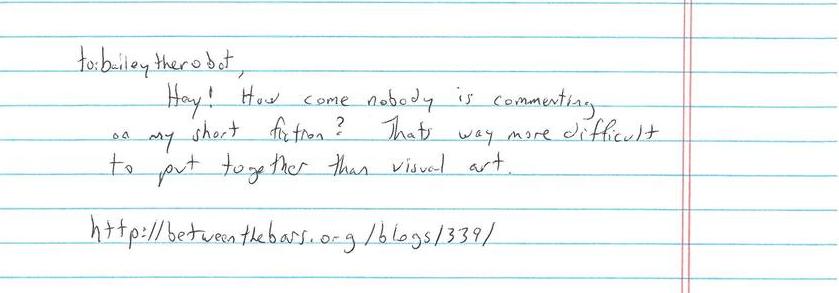 to:baileytherobot,
Hay! How come nobody is commenting
on my short fiction? Thats way more difficult
to put together than visual art.
http://betweenthebars.org/blogs/339/